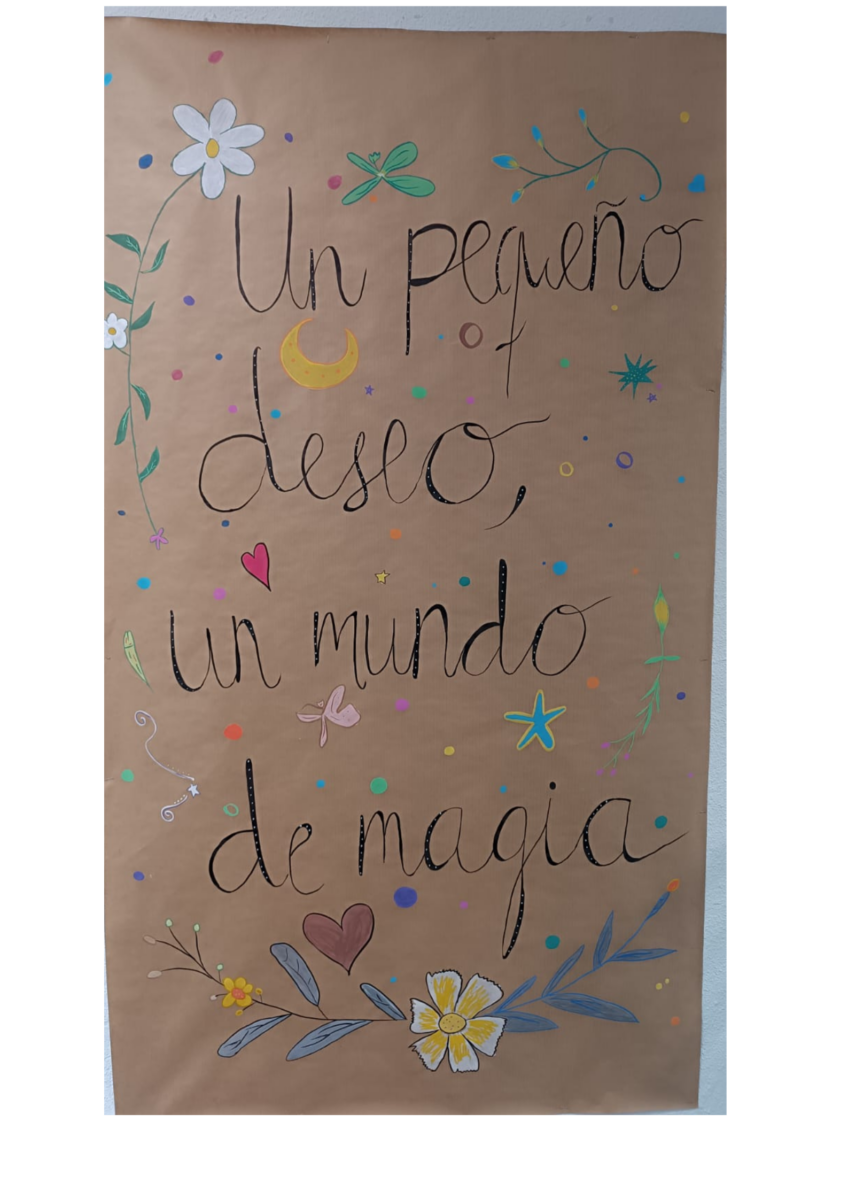 Un pequeño
deseo,
un mundo
de magia